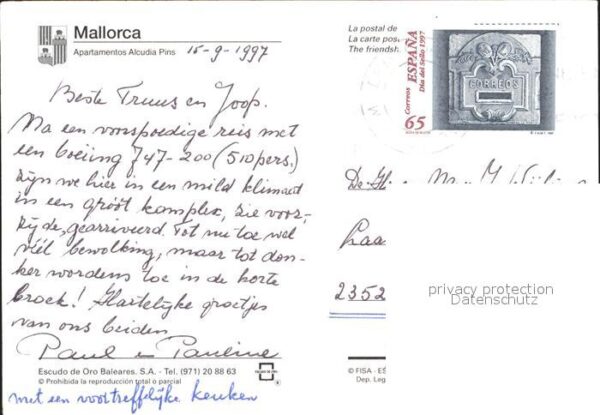 Mallorca
Apartamentos Alcudia Pins 15-9-1997
La postal de
La carte pos
The friendsh
Correos ESPAÑA
Día del Sello 1997
65
CORREOS
Beste Truus en Joop.
Na een voorspoedige reis met
een boeiing 747-200 (510 pers.)
zijn we hier in een mild klimaat
in een groot komplex, zie voor-
zijde, gearriveerd. Tot nu toe wel
véél bewolking, maar tot don-
ker wordens toe in de korte
broek! Hartelijke groetjes
van ons beiden
Paul en Pauline
De
Laa
2352
privacy protection
Datenschutz
Escudo de Oro Baleares. S.A. - Tel. (971) 20 88 63
© Prohibida la reproducción total o parcial
© FISA - ES
Dep. Leg
met een voortreffelijke keuken